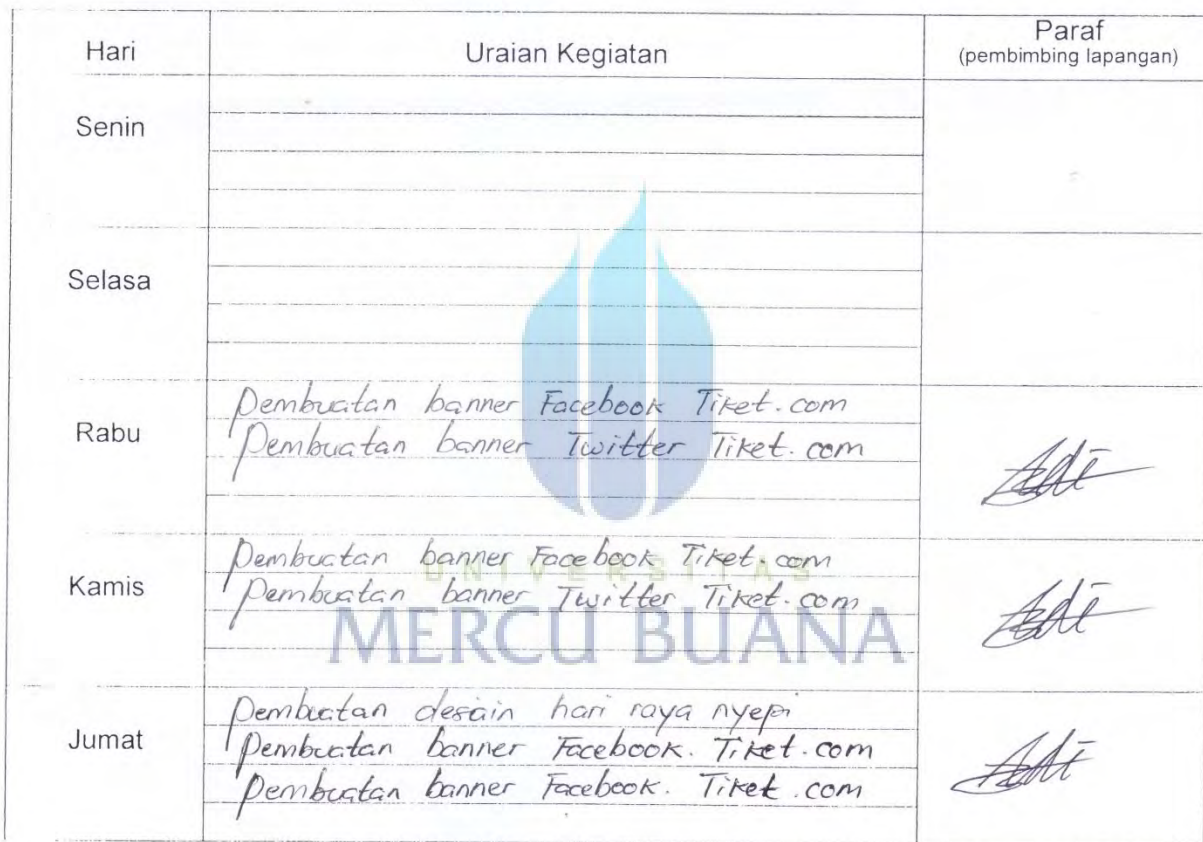 Hari Uraian Kegiatan Paraf
(pembimbing lapangan)
Senin
Selasa
Rabu
Pembuatan banner Facebook Tiket.com
Pembuatan banner Twitter Tiket.com
Kamis
Pembuatan banner Facebook Tiket.com
Pembuatan banner Twitter Tiket.com
UNIVERSITAS
MERCU BUANA
Jumat
Pembuatan desain hari raya nyepi
Pembuatan banner Facebook. Tiket.com
Pembuatan banner Facebook. Tiket.com